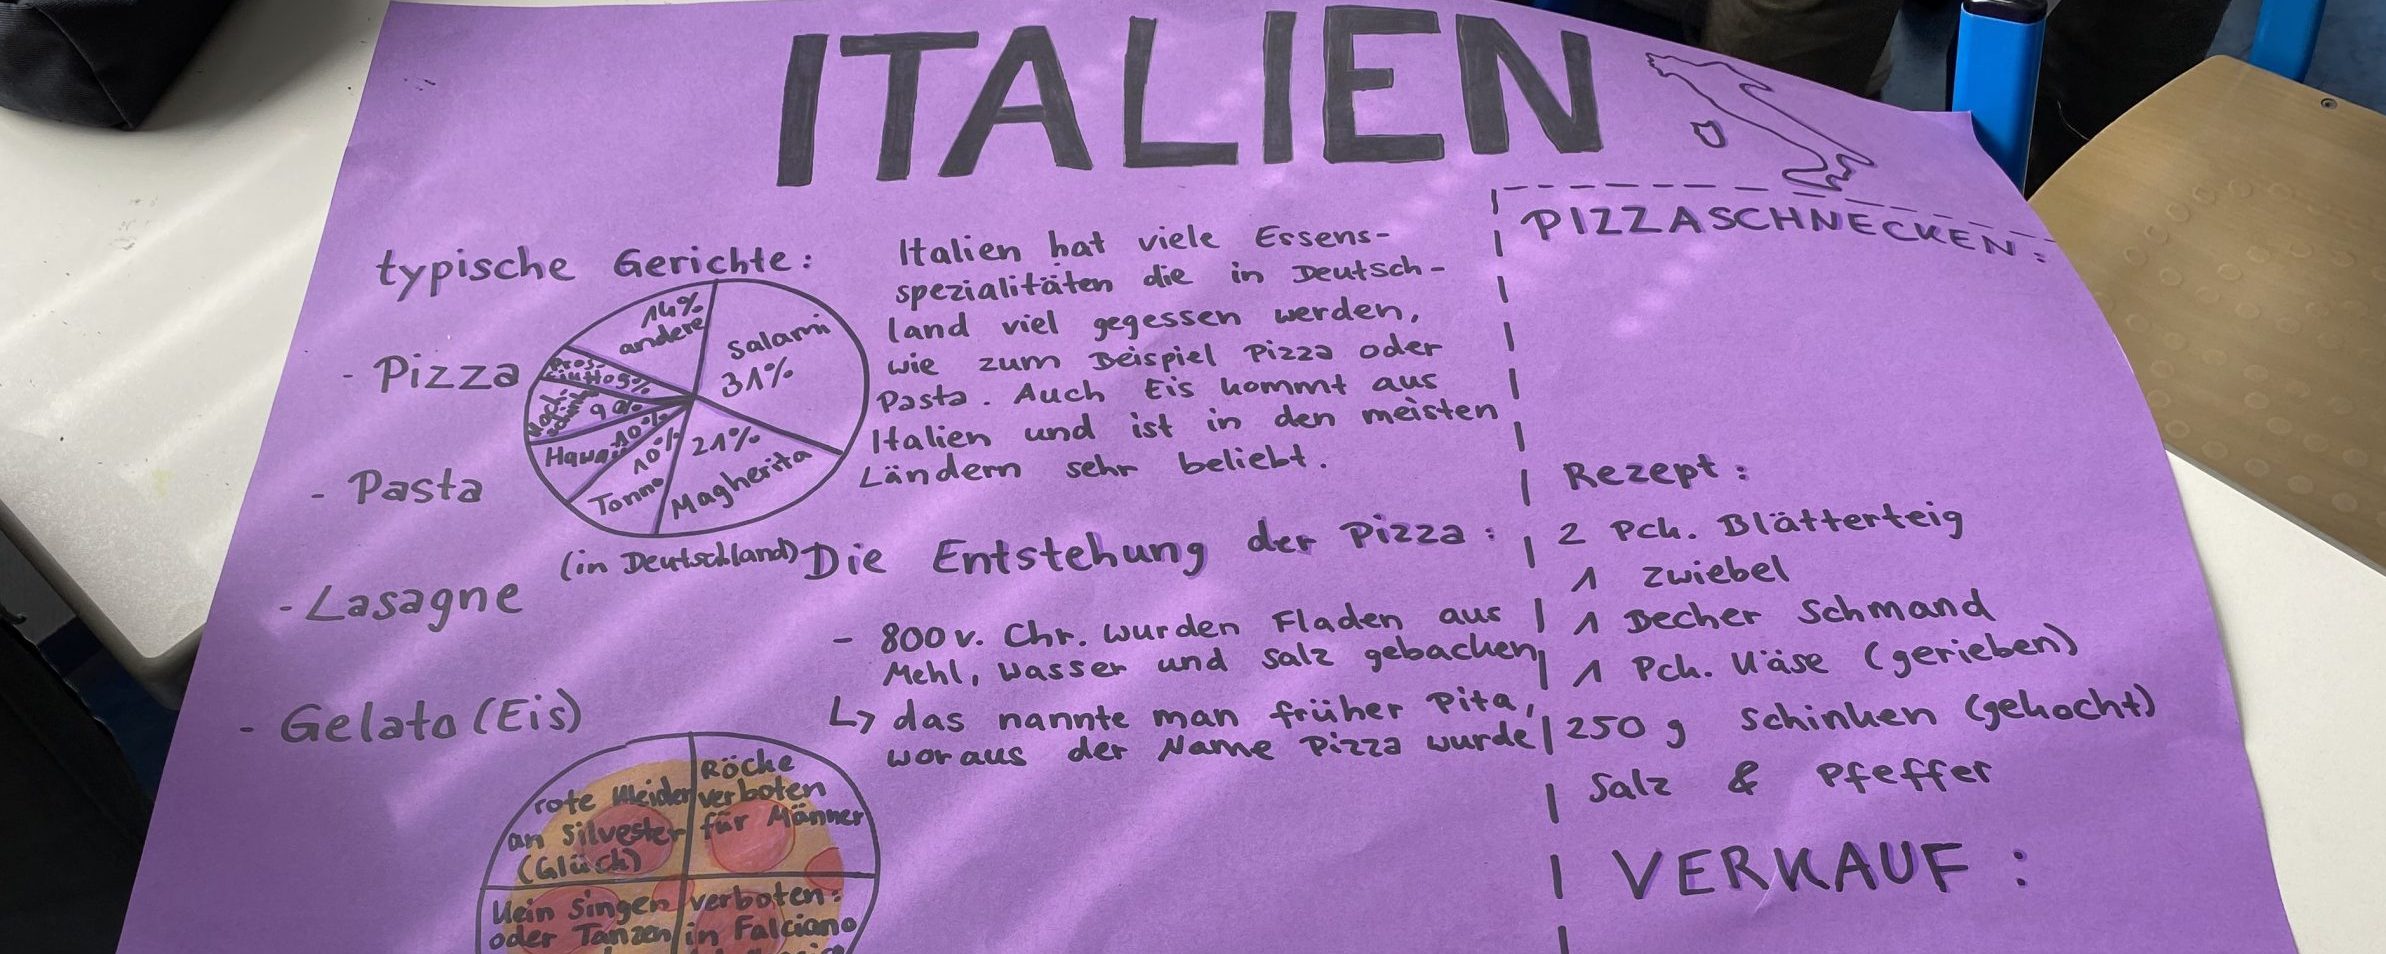 ITALIEN
typische Gerichte:
- Pizza
- Pasta
- Lasagne
- Gelato (Eis)
14%
andere
Salami
31%
21%
Magherita
10%
Tonno
10%
Hawaii
9%
5%
(in Deutschland)
Italien hat viele Essens-
spezialitäten die in Deutsch-
land viel gegessen werden,
wie zum Beispiel Pizza oder
Pasta. Auch Eis kommt aus
Italien und ist in den meisten
Ländern sehr beliebt.
Die Entstehung der Pizza:
- 800 v. Chr. wurden Fladen aus
Mehl, Wasser und Salz gebacken
↳ das nannte man früher Pita,
woraus der Name Pizza wurde
rote Kleider
an Silvester
(Glück)
Röcke
verboten
für Männer
Kein Singen
oder Tanzen
verboten:
in Falciano
PIZZASCHNECKEN:
Rezept:
2 Pck. Blätterteig
1 Zwiebel
1 Becher Schmand
1 Pck. Käse (gerieben)
250 g Schinken (gekocht)
Salz & Pfeffer
VERKAUF: